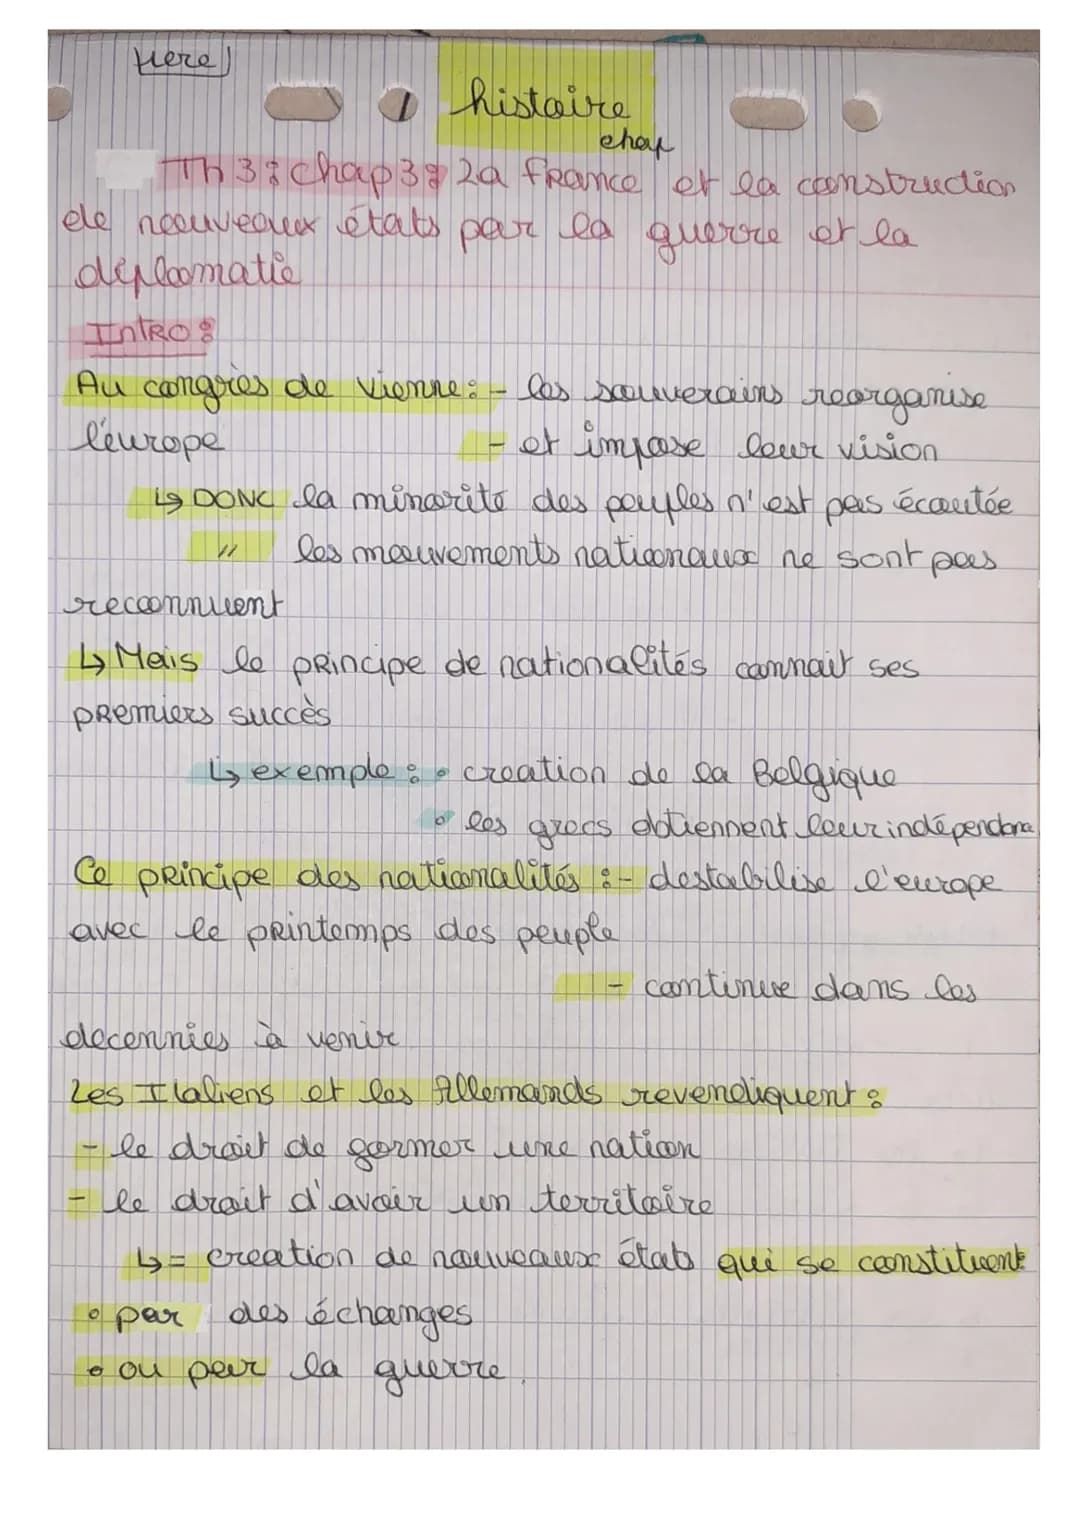 1ere
histoire
chap
Th 3 : chap 3 : La france et la construction
de nouveaux états par la guerre et la
diplomatie
Intro :
Au congrès de Vienne : - les souverains reorganise
l'europe - et impose leur vision
↳ DONC la minorité des peuples n'est pas écoutée
" les mouvements nationaux ne sont pas
reconnuent
↳ Mais le principe de nationalités connait ses
premiers succès
↳ exemple : • creation de la Belgique
• les grecs obtiennent leur indépendance
Ce principe des nationalités : - destabilise l'europe
avec le printemps des peuple
- continue dans les
decennies à venir
Les Italiens et les Allemands revendiquent :
- le droit de former une nation
- le droit d'avoir un territoire
↳ = creation de nouveaux états qui se constituent
• par des échanges
• ou par la guerre.